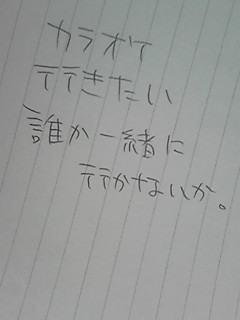 カラオケ
行きたい
誰か一緒に
行かないか。